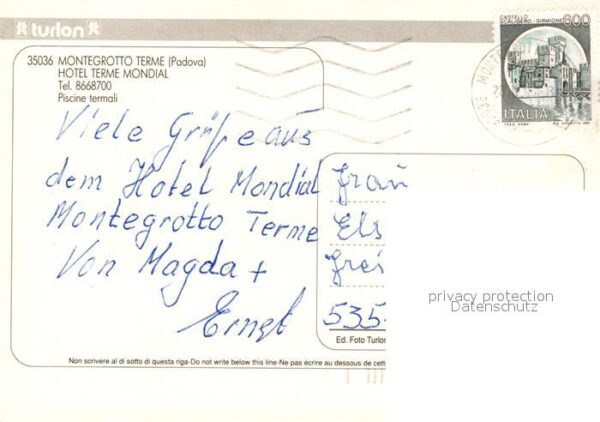 turlon
35036 MONTEGROTTO TERME (Padova)
HOTEL TERME MONDIAL
Tel. 8668700
Piscine termali
CASTELLO
SCALIGERO - SIRMIONE
600
ITALIA
Viele Grüße aus
dem Hotel Mondial
Montegrotto Terme
Von Magda +
Ernst
Frau
Els
535
privacy protection
Datenschutz
Ed. Foto Turlon
Non scrivere al di sotto di questa riga-Do not write below this line-Ne pas écrire au dessous de cette